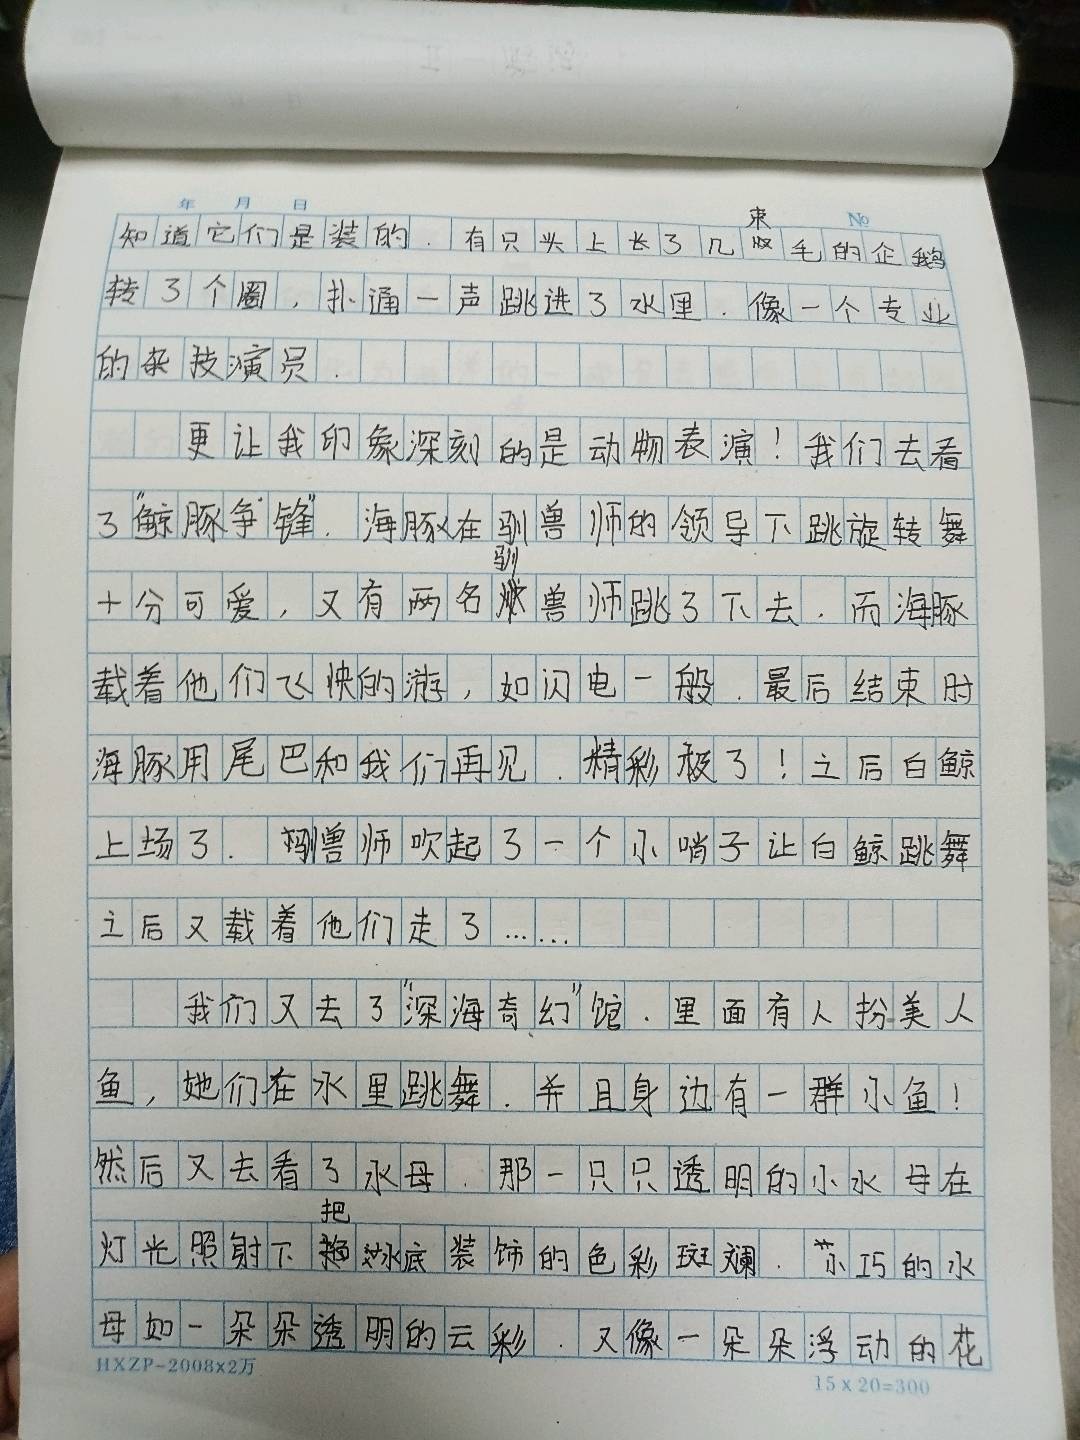 年 月 日 №
知道它们是装的.有只头上长了几束毛的企鹅
转了个圈,扑通一声跳进了水里.像一个专业
的杂技演员.
更让我印象深刻的是动物表演!我们去看
了"鲸豚争锋".海豚在驯兽师的领导下跳旋转舞
十分可爱,又有两名驯兽师跳了下去.而海豚
载着他们飞快的游,如闪电一般.最后结束时
海豚用尾巴和我们再见.精彩极了!之后白鲸
上场了.驯兽师吹起了一个小哨子让白鲸跳舞
之后又载着他们走了……
我们又去了"深海奇幻"馆.里面有人扮美人
鱼,她们在水里跳舞.并且身边有一群小鱼!
然后又去看了水母.那一只只透明的小水母在
灯光照射下把水底装饰的色彩斑斓.小巧的水
母如一朵朵透明的云彩.又像一朵朵浮动的花
HXZP-2008×2万
15×20=300